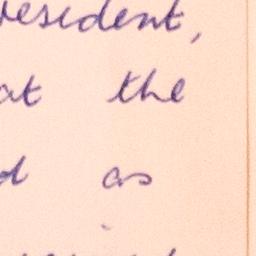 resident,
at the
d as